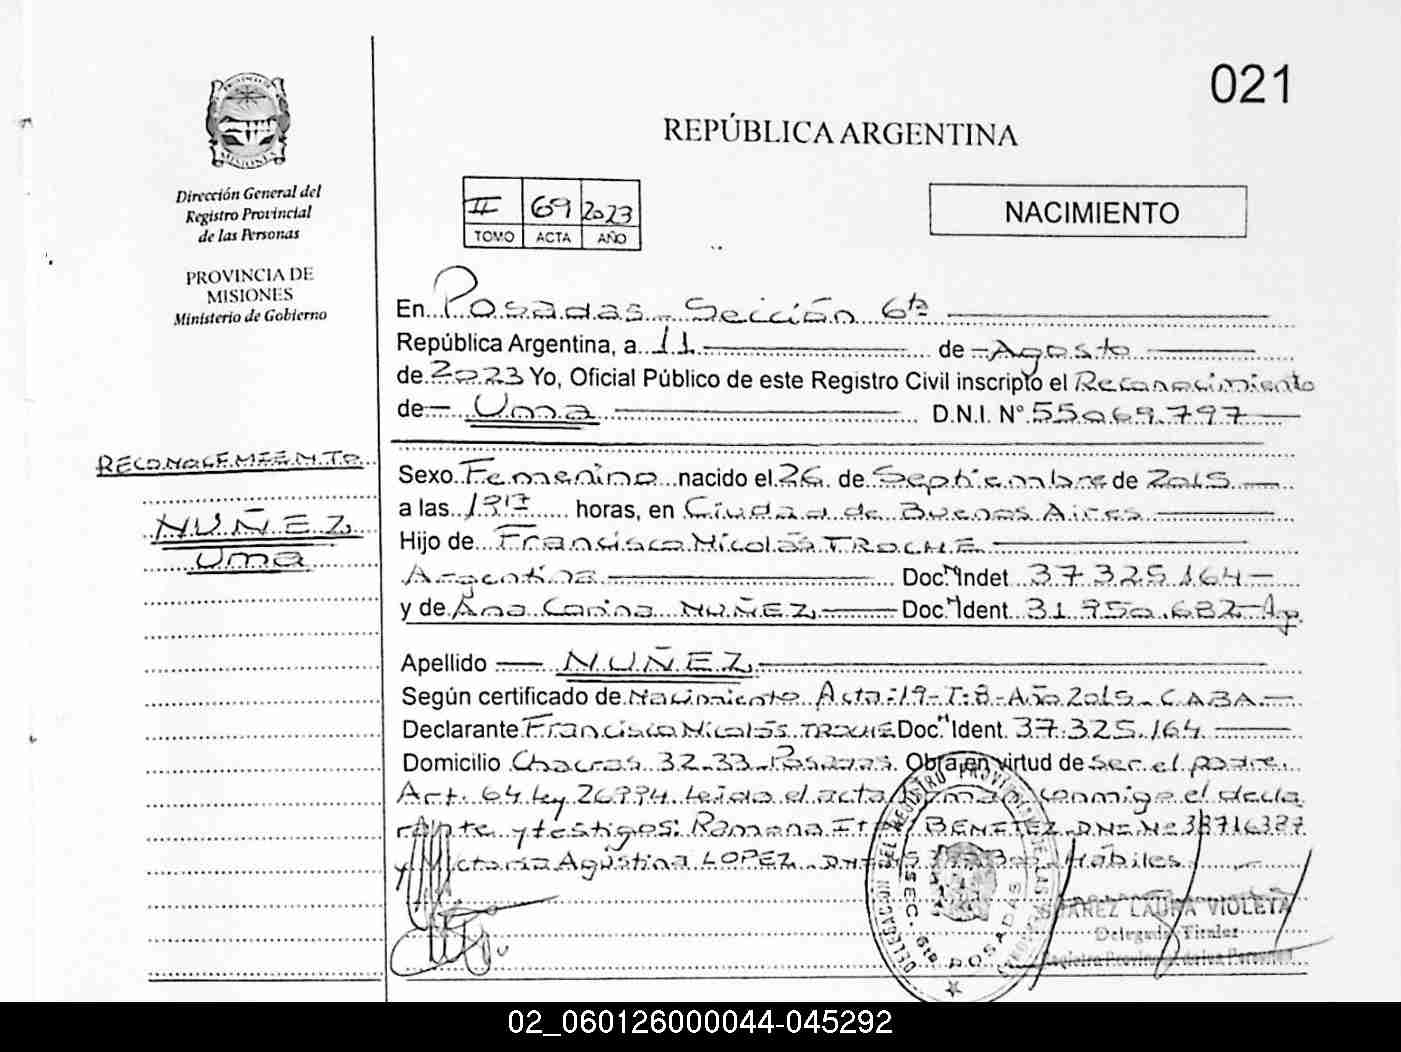 021
REPÚBLICA ARGENTINA
Dirección General del
Registro Provincial
de las Personas
PROVINCIA DE
MISIONES
Ministerio de Gobierno
II 69 2023
TOMO ACTA AÑO
NACIMIENTO
En Posadas - Sección 6ta
República Argentina, a 11 de Agosto
de 2023 Yo, Oficial Público de este Registro Civil inscripto el Reconocimiento
de Uma D.N.I. N° 55069.797
RECONOCIMIENTO
NUÑEZ
Uma
Sexo Femenino nacido el 26 de Septiembre de 2015
a las horas, en Ciudad de Buenos Aires
Hijo de Francisco Nicolás TROCHE
Argentina Doc. Indet 37.325.164
y de Ana Carina NUÑEZ Doc. Ident. 31.950.682 - Ag.
Apellido NUÑEZ
Según certificado de Nacimiento Acta: 19 - T: 8 - Año 2015 - CABA
Declarante Francisco Nicolás TROCHE Doc. Ident. 37.325.164
Domicilio Chacras 32-33 - Posadas. Obra en virtud de ser el padre.
Art. 64 Ley 26994 Leída el acta conmigo el decla
rante y testigos: Ramona BENITEZ DNI Nº 38716387
y Victoria Agustina LOPEZ Hábiles.
DELEGACION DEL REGISTRO PROVINCIAL DE LAS PERSONAS
SEC. 6ta POSADAS
LAURA VIOLETA
Delegada Titular
Registro Provincial de las Personas
02_060126000044-045292